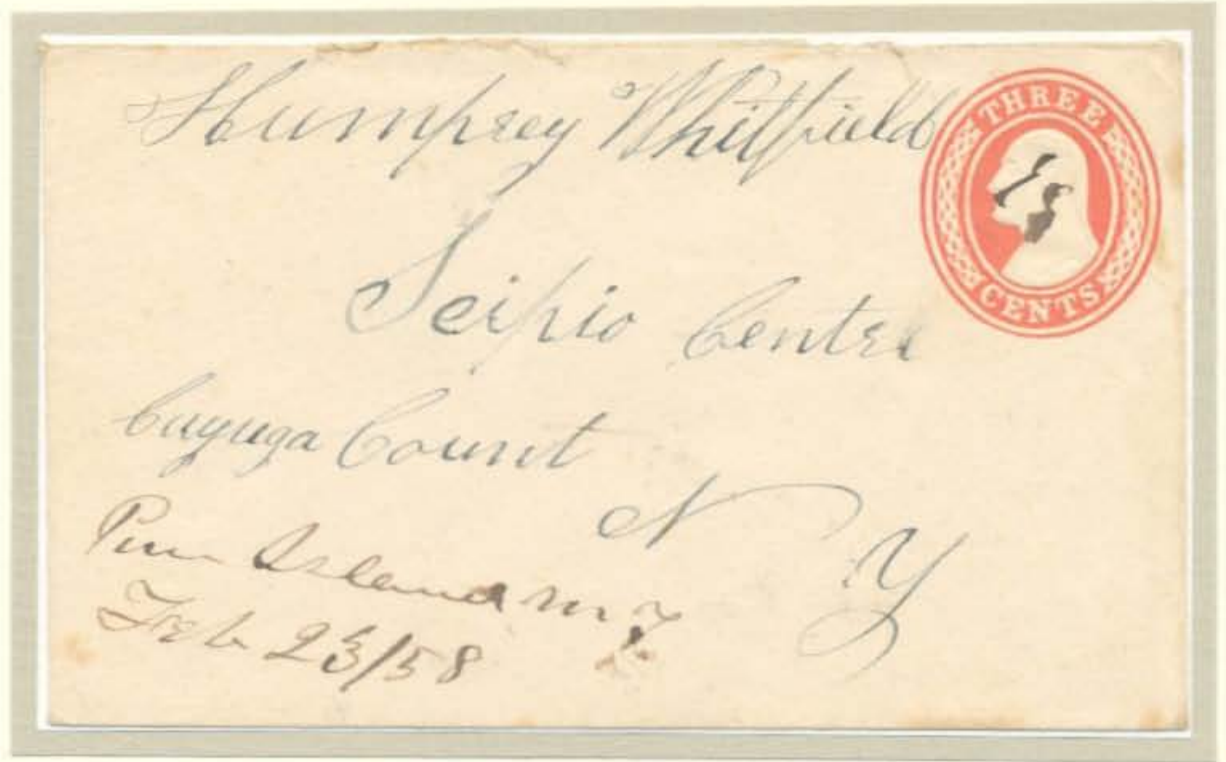 Humprey Whitfield
THREE
CENTS
Scipio Centre
Cayuga Count
N Y
Pine Island M T
Feb 23/58